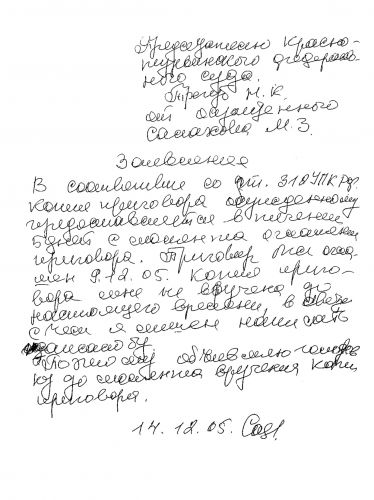 Председателю Красно-
пресненского федераль-
ного суда.
Тришу Н. К.
от осужденного
Салахова М. З.
Заявление
В соответствие со ст. 312 УПК РФ.
копия приговора осужденному
предоставляется в течении
5 дней с момента оглашения
приговора. Приговор был огла-
шен 9.12.05. Копия приго-
вора мне не вручена до
настоящего времени, в связи
с чем я лишен написать
касатку
Поэтому объявляю голодов
ку до момента вручения копии
приговора.
14.12.05.